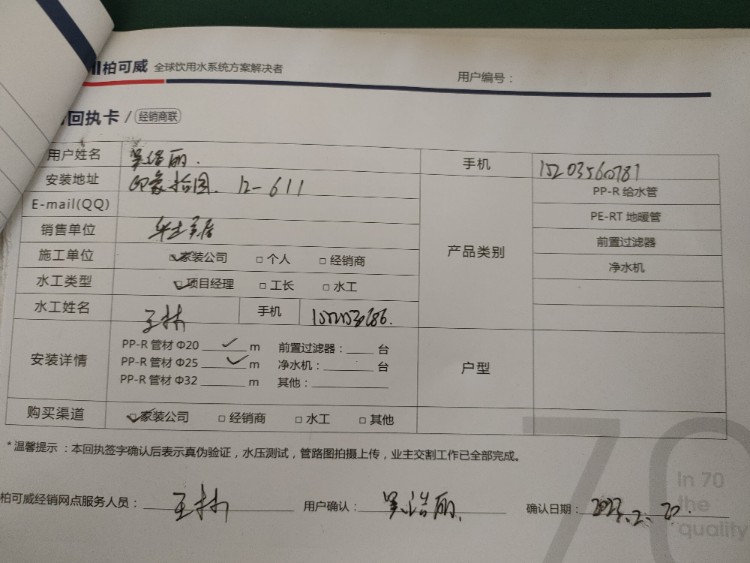 柏可威 全球饮用水系统方案解决者
用户编号：
回执卡 / 经销商联
用户姓名 吴浩丽. 手机
安装地址 印象拾园. 12-611 产品类别 PP-R 给水管
E-mail(QQ) PE-RT 地暖管
销售单位 前置过滤器
施工单位 家装公司 个人 经销商 净水机
水工类型 项目经理 工长 水工
水工姓名 王林 手机
安装详情 PP-R 管材 Φ20 ✓ m 前置过滤器：____ 台 户型
PP-R 管材 Φ25 ✓ m 净水机：____ 台
PP-R 管材 Φ32 ____ m 其他：____
购买渠道 家装公司 经销商 水工 其他
*温馨提示：本回执签字确认后表示真伪验证，水压测试，管路图拍摄上传，业主交割工作已全部完成。
柏可威经销网点服务人员： 王林 用户确认： 吴浩丽. 确认日期：
70
In 70
the
quality